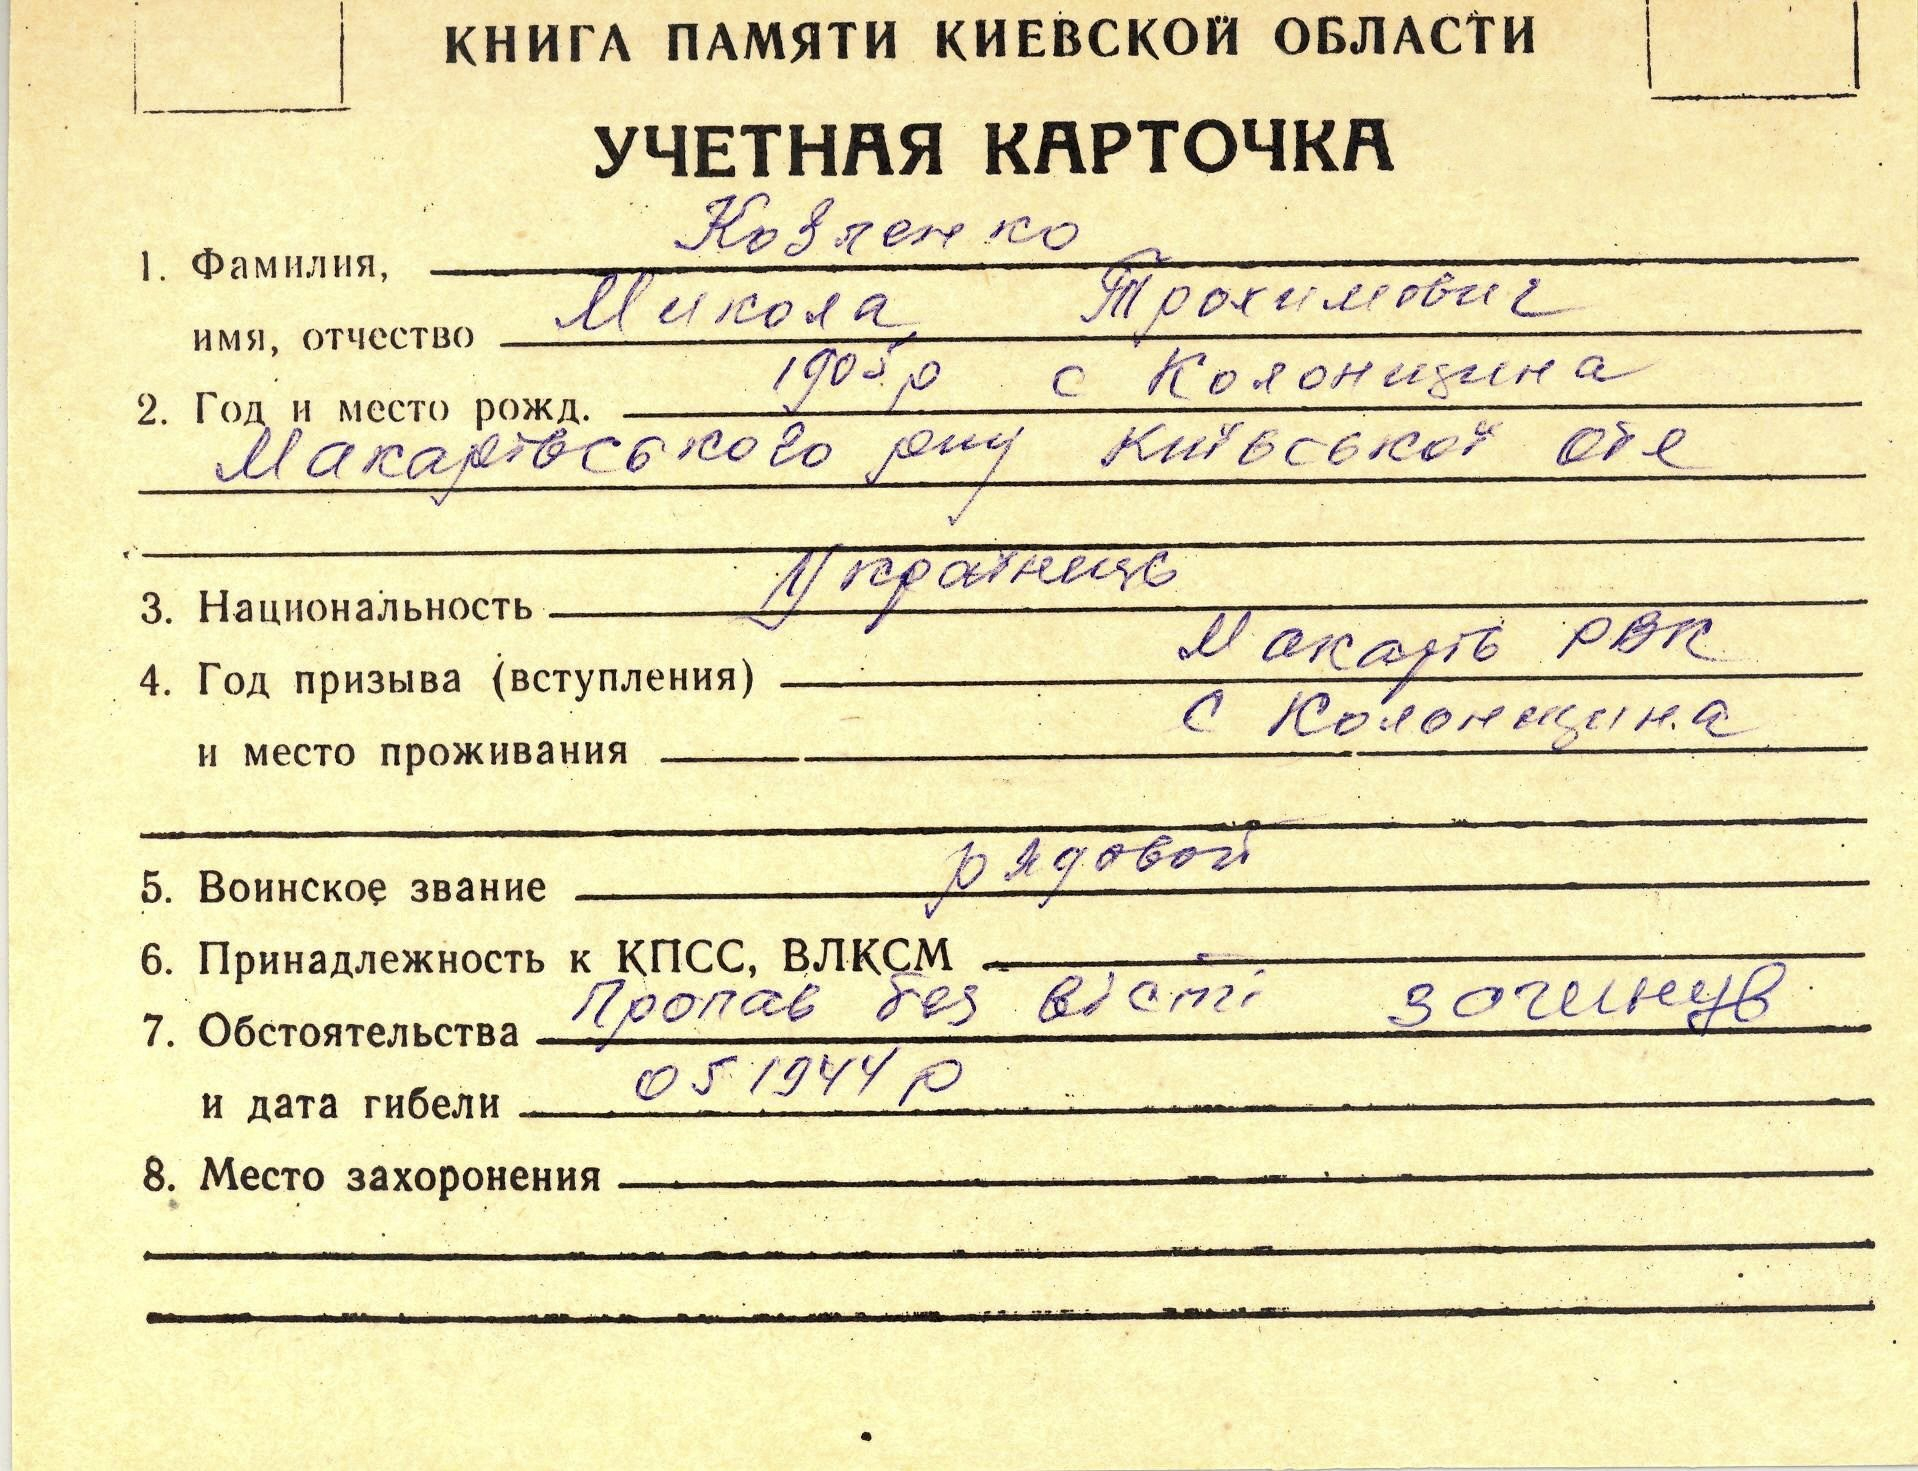 КНИГА ПАМЯТИ КИЕВСКОЙ ОБЛАСТИ
УЧЕТНАЯ КАРТОЧКА
1. Фамилия, Козленко
имя, отчество Микола Трохимович
2. Год и место рожд. 1905 р с Колонщина
Макарівського р-ну Київської обл
3. Национальность Українець
4. Год призыва (вступления) Макарів РВК
и место проживания с Колонщина
5. Воинское звание рядовой
6. Принадлежность к КПСС, ВЛКСМ —
7. Обстоятельства Пропав без вісті загинув
и дата гибели 05 1944 р
8. Место захоронения